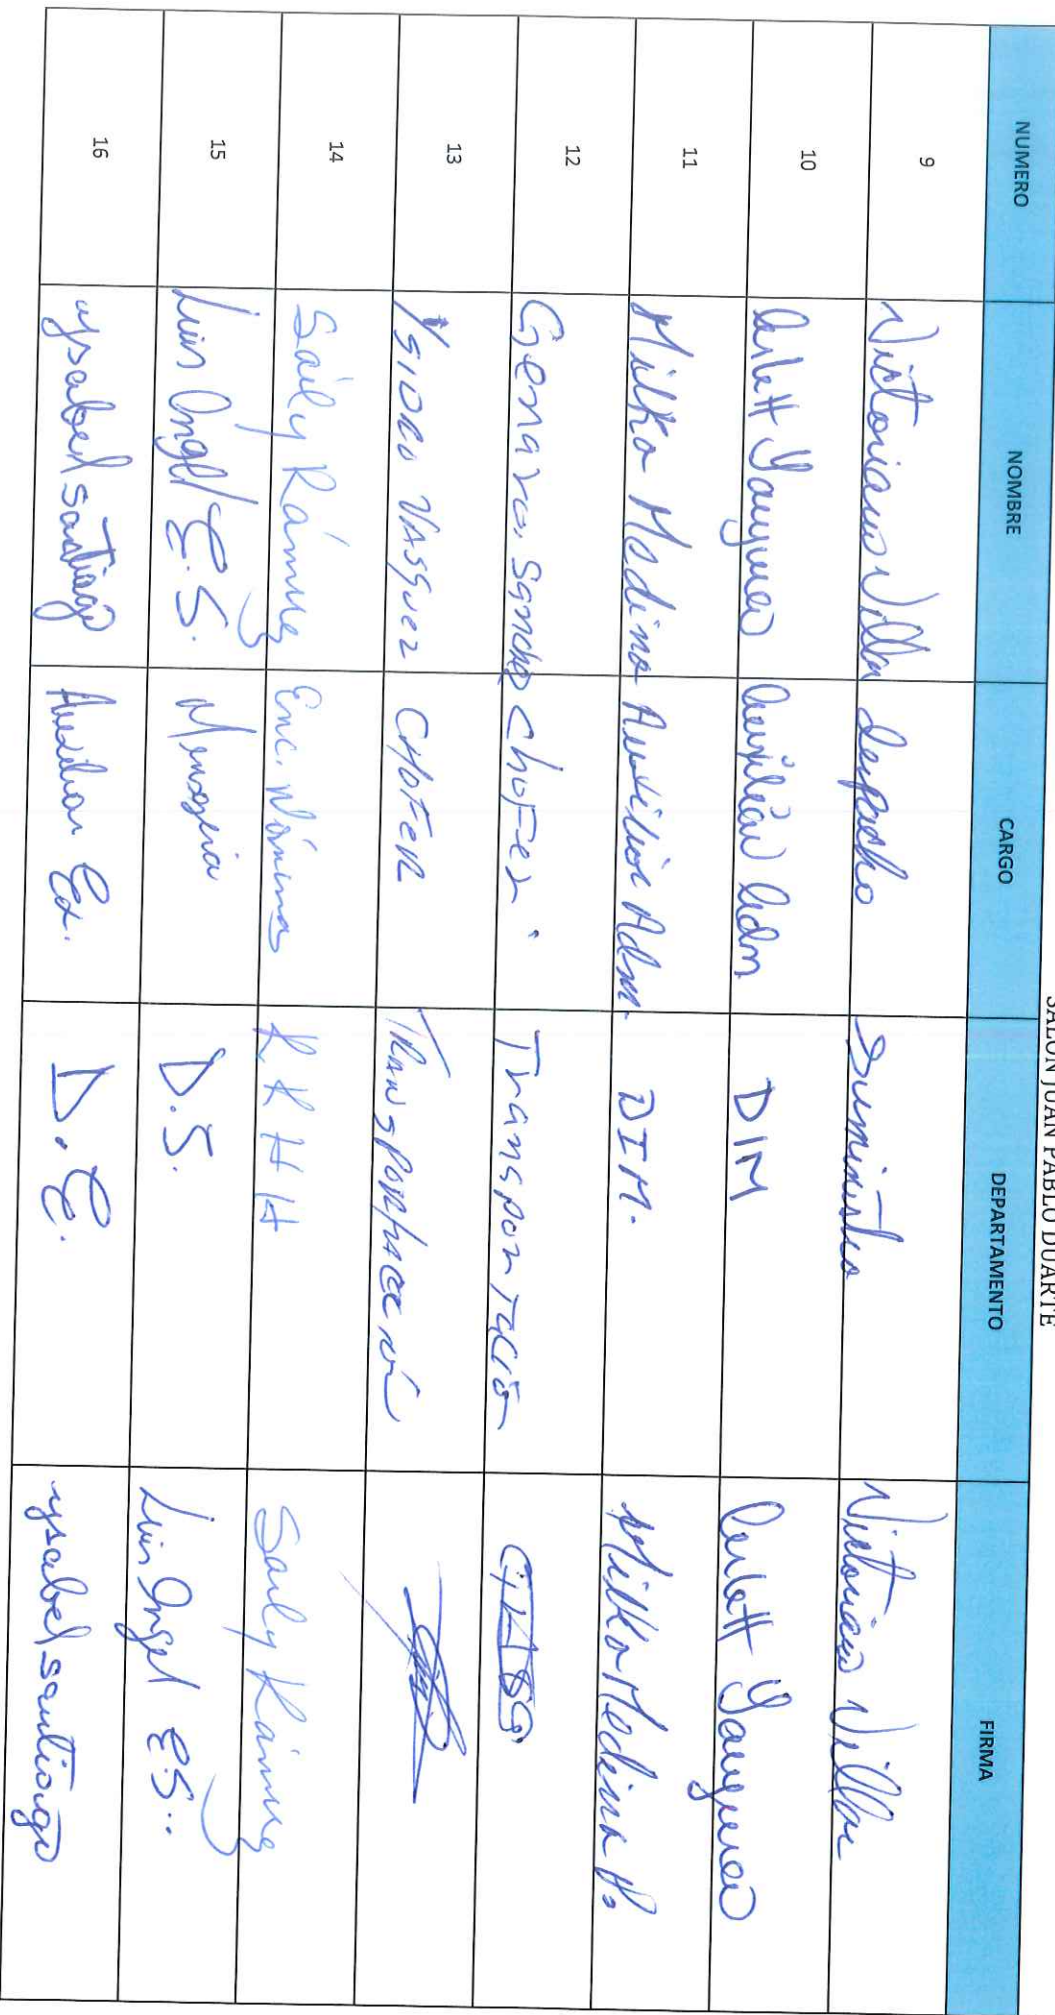 SALON JUAN PABLO DUARTE
NUMERO NOMBRE CARGO DEPARTAMENTO FIRMA
9 Victoriano Villar despacho Suministro Victoriano Villar
10 Yanguez Auxiliar Adm DIM Yanguez
11 Milka Medina Auxiliar Adm. DIM. Milka Medina P.
12 Genaro. Sanchez chofer. Transportació
13 Ysidro Vasquez CHOFER Transportación
14 Saily Ramírez Enc. Nóminas RRHH Saily Ramírez
15 Luis Angel E.S. Mensajeria D.S. Luis Angel E.S..
16 ysabel santiago Auxiliar D.E. ysabel santiago